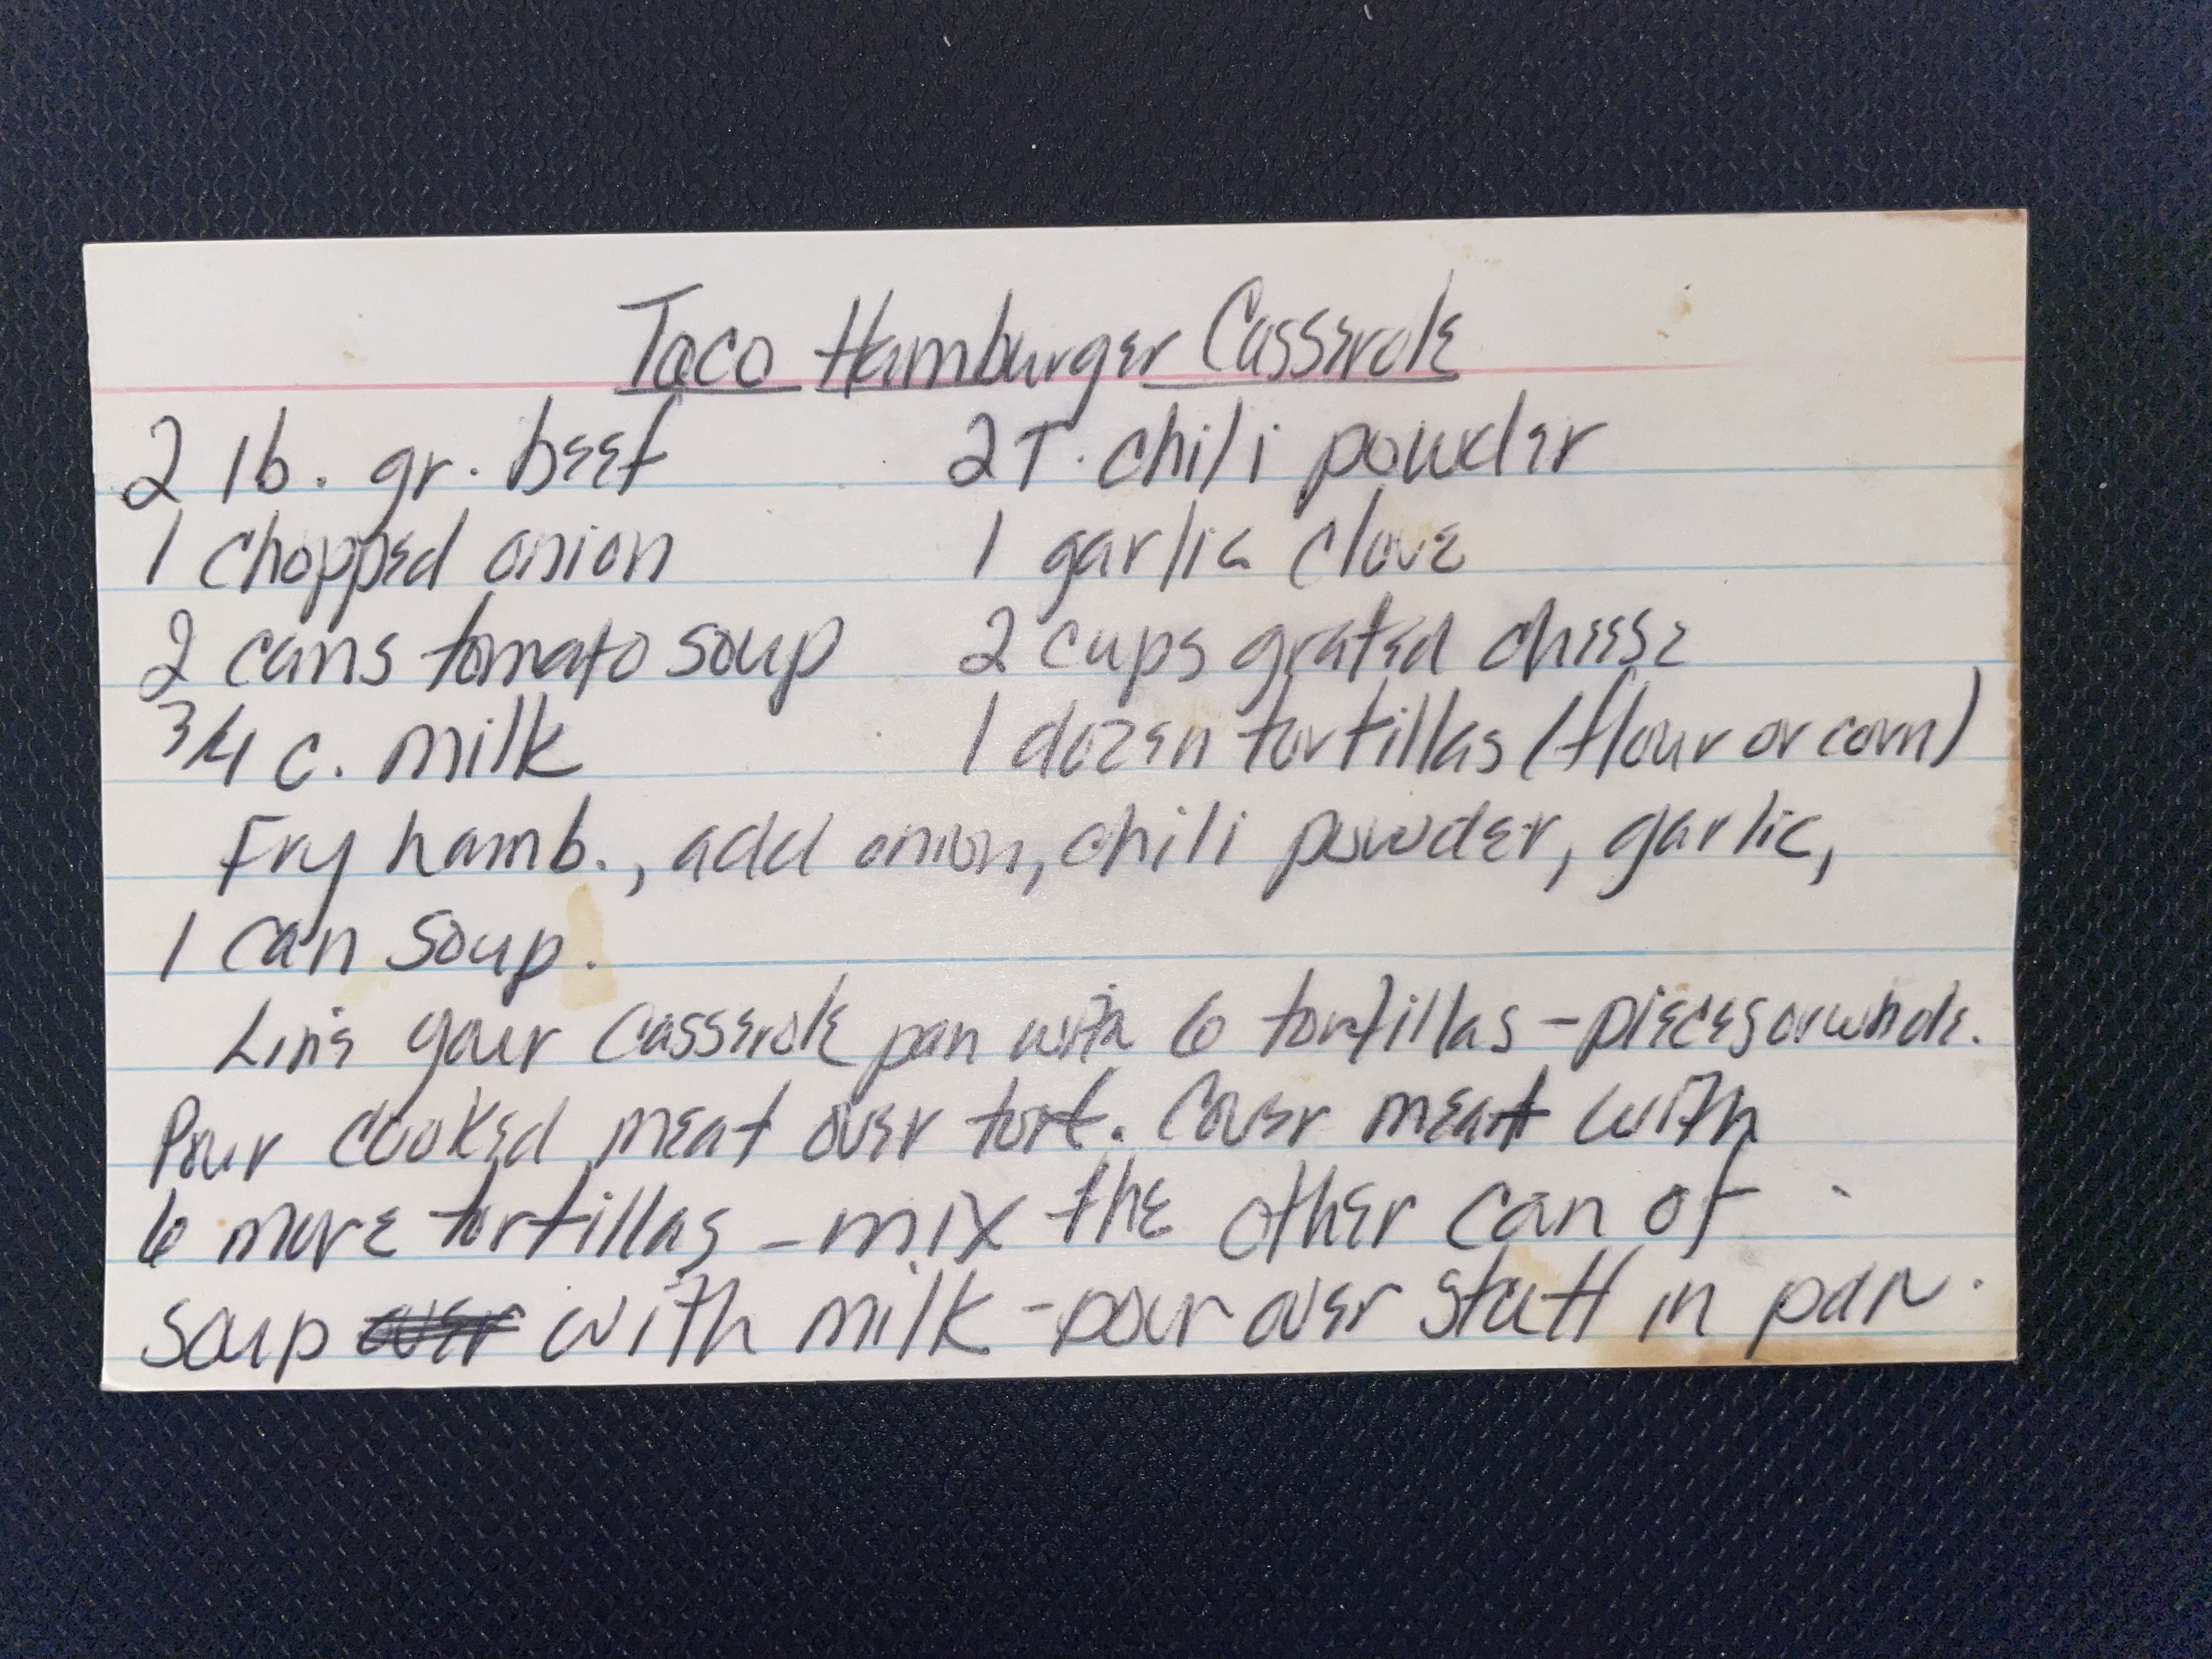 Taco Hamburger Casserole
2 lb. gr. beef 2 T. chili powder
1 chopped onion 1 garlic clove
2 cans tomato soup 2 cups grated cheese
3/4 c. milk 1 dozen tortillas (flour or corn)
Fry hamb., add onion, chili powder, garlic,
1 can soup.
Line your casserole pan with 6 tortillas - pieces or whole.
Pour cooked meat over tort. Cover meat with
6 more tortillas - mix the other can of
soup over with milk - pour over stuff in pan.